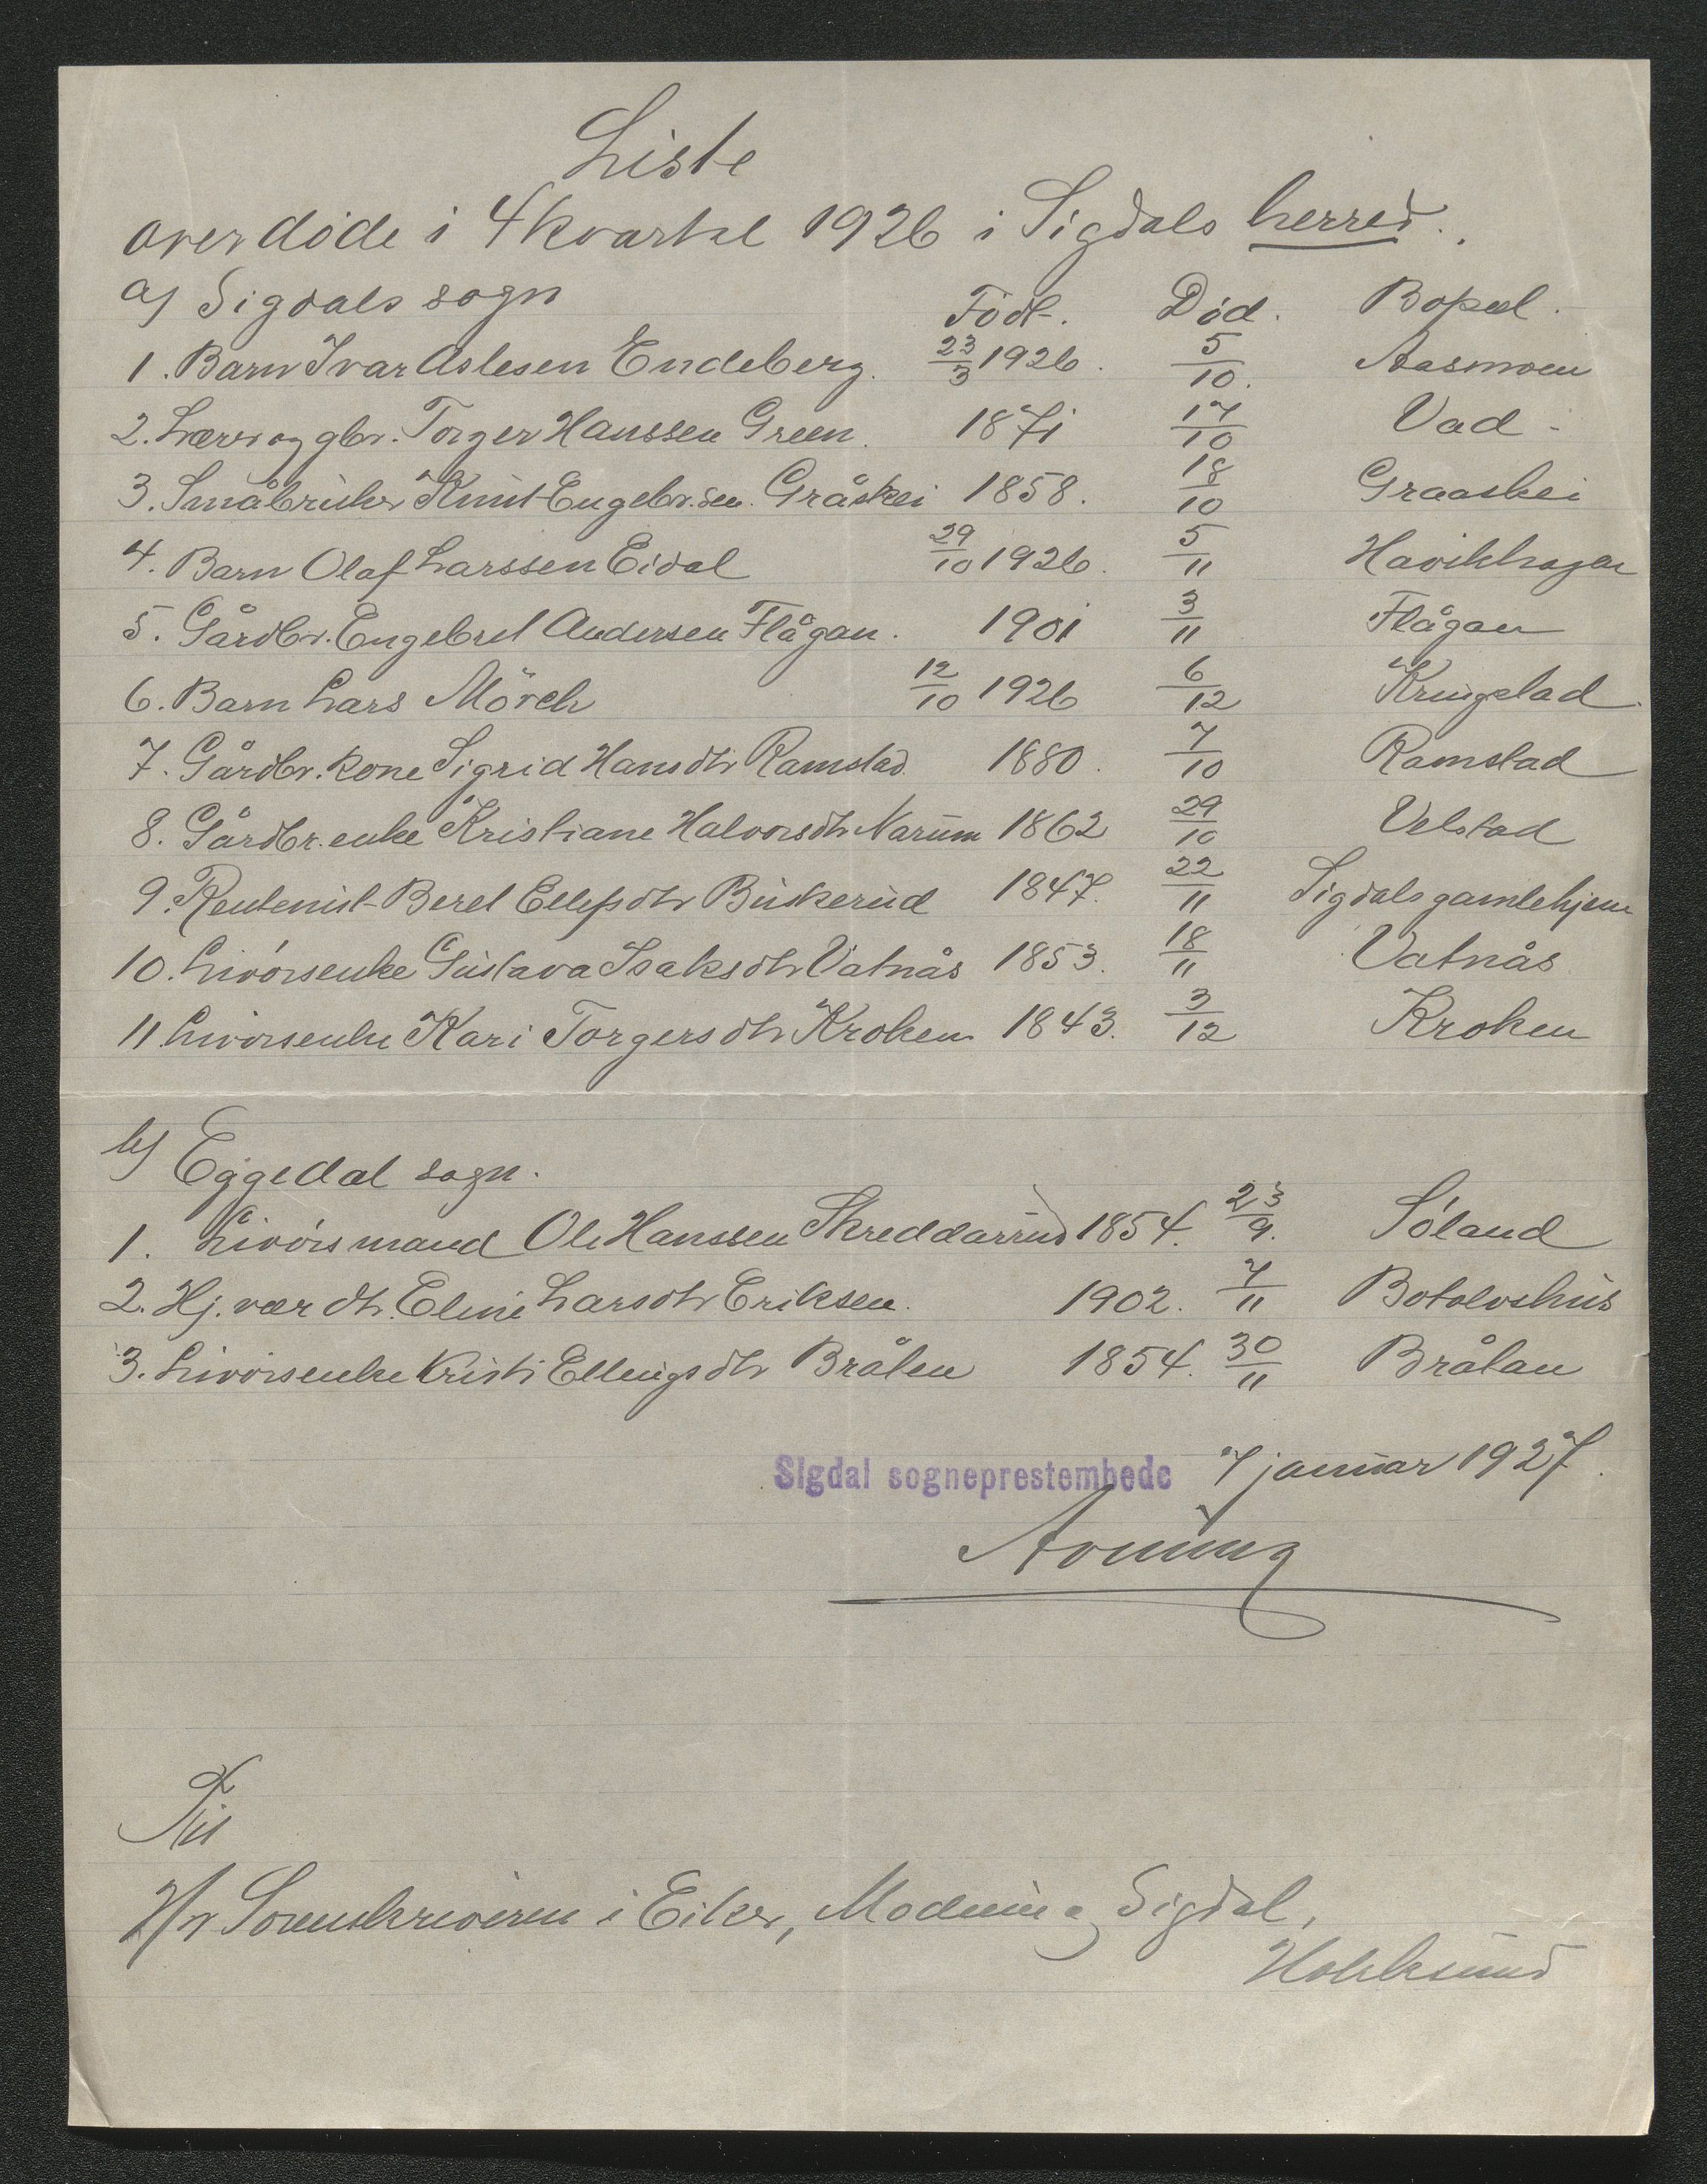 Liste
over døde i 4 kvartal 1926 i Sigdals herred.
a) Sigdals sogn Født. Død. Bopæl.
1. Barn Ivar Aslesen Endeberg. 23/3 1926. 5/10. Aasmoen
2. Lærer og gbr. Torger Hanssen Green. 1871 17/10 Vad
3. Småbruker Knut Engebr.sen Gråskei 1858. 18/10 Graaskei
4. Barn Olaf Larssen Eidal 29/10 1926. 5/11 Havikhagen
5. Gårdbr. Engebret Andersen Flågan. 1901 3/11 Flågan
6. Barn Lars Mörch 12/10 1926 6/12 Kringstad
7. Gårdbr. kone Sigrid Hansdtr Ramstad 1880. 7/10 Ramstad
8. Gårdbr. enke Kristiane Halvorsdtr Narum 1862 29/10 Velstad
9. Rentenist Beret Ellefsdtr Buskerud 1847. 22/11 Sigdals gamlehjem
10. Livörsenke Gustava Isaksdtr Vatnås 1853. 18/11 Vatnås
11 Livörsenke Kari Torgersdtr Kroken 1843. 3/12 Kroken
b) Eggedal sogn.
1. Livörsmand Ole Hanssen Skreddarrud 1854. 23/9. Söland
2. Hj. vær dtr. Eline Larsdtr Eriksen. 1902. 7/11 Botolvshus
3. Livörsenke Kristi Ellingsdtr Bråten 1854. 30/11 Bråtan
Sigdal sogneprestembede 7 januar 1927.
Til
Hr Sorenskriveren i Eiker, Modum og Sigdal,
Hokksund